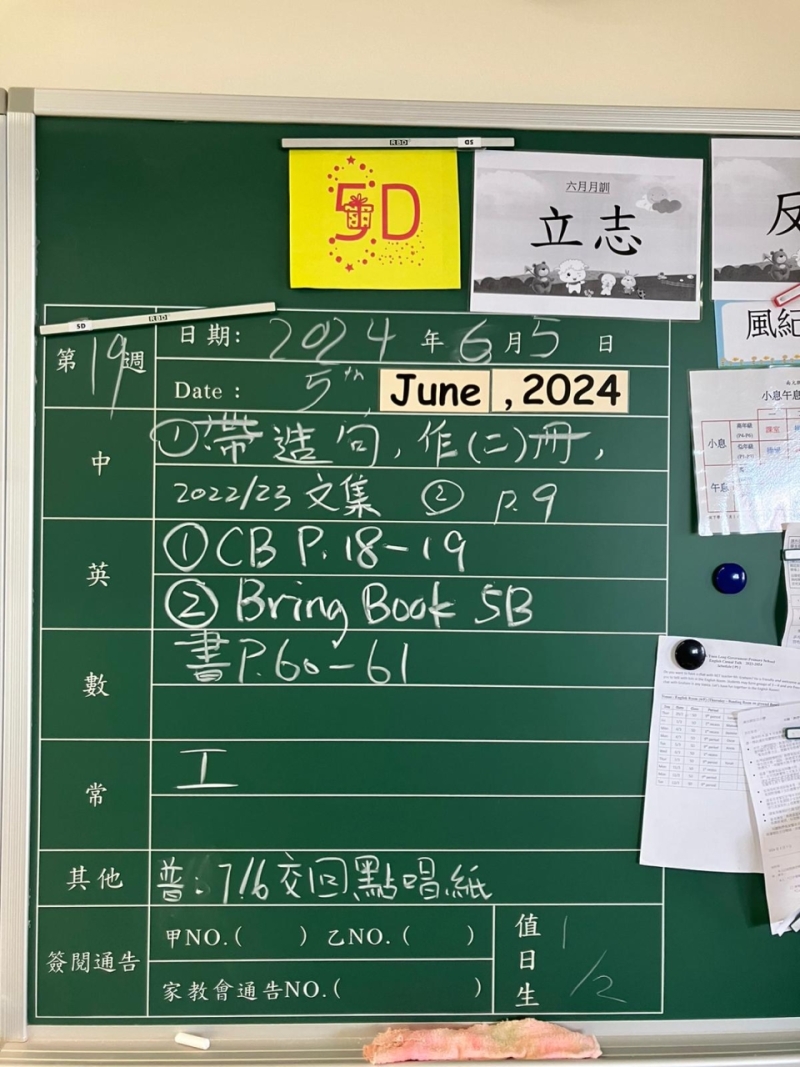 5D
六月月訓
立志
反
風紀
小息午息
小息
午息
課室
第19週
日期: 2024 年 6 月 5 日
Date : 5th June , 2024
中
①帶造句, 作(二)冊,
2022/23 文集 ② P.9
英
①CB P.18-19
② Bring Book 5B
數
書P.60-61
常
工
其他
普: 7/6 交回點唱紙
簽閱通告
甲NO.( ) 乙NO.( )
家教會通告NO.( )
值日生
1
/2